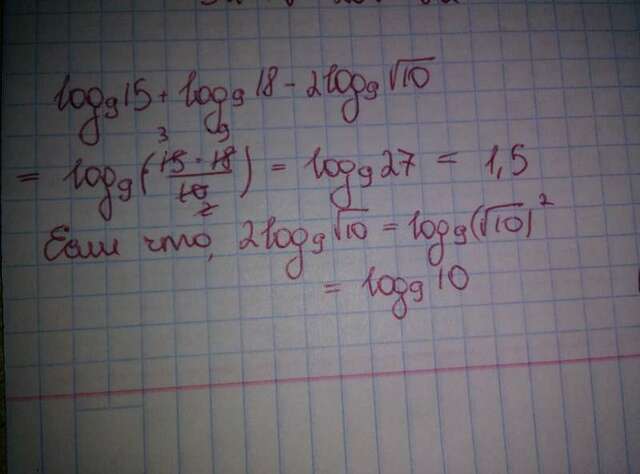 log₉15 + log₉18 - 2log₉√10
= log₉(15·18/10) = log₉27 = 1,5
3 9
2
Если что, 2log₉√10 = log₉(√10)²
= log₉10